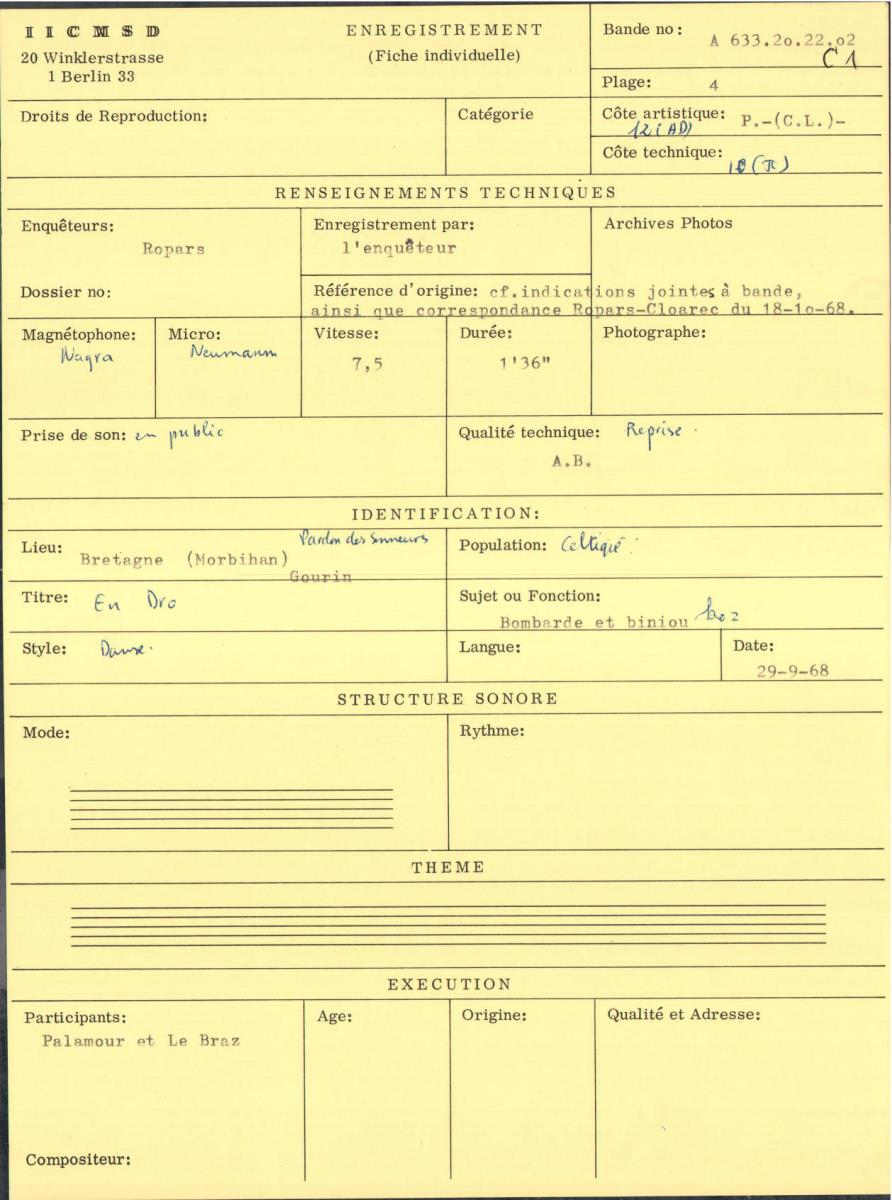 I I C M S D
20 Winklerstrasse
1 Berlin 33
ENREGISTREMENT
(Fiche individuelle)
Bande no: A 633.2o.22.o2
C1
Plage: 4
Droits de Reproduction:
Catégorie
Côte artistique: P.-(C.L.)-
12(AD)
Côte technique:
RENSEIGNEMENTS TECHNIQUES
Enquêteurs:
Ropars
Enregistrement par:
l'enquêteur
Archives Photos
Dossier no:
Référence d'origine: cf.indications jointes à bande,
ainsi que correspondance Ropars-Cloarec du 18-1o-68.
Magnétophone:
Nagra
Micro:
Neumann
Vitesse:
7,5
Durée:
1'36"
Photographe:
Prise de son: en public
Qualité technique: Reprise.
A.B.
IDENTIFICATION:
Lieu: Pardon des Sonneurs
Bretagne (Morbihan)
Gourin
Population: Celtique
Titre: En Dro
Sujet ou Fonction:
Bombarde et biniou koz
Style: Danse.
Langue:
Date:
29-9-68
STRUCTURE SONORE
Mode:
Rythme:
THEME
EXECUTION
Participants:
Palamour et Le Braz
Age:
Origine:
Qualité et Adresse:
Compositeur: